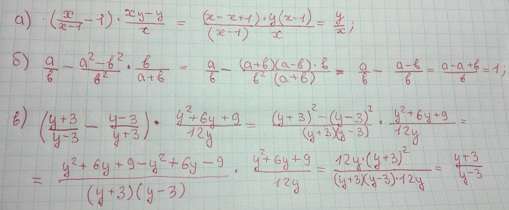 а) (x/(x-1) - 1) · (xy-y)/x = ((x-x+1)·y(x-1))/((x-1) x) = y/x;
б) a/b - (a²-b²)/b² · b/(a+b) = a/b - ((a+b)(a-b)·b)/(b²(a+b)) = a/b - (a-b)/b = (a-a+b)/b = 1;
в) ((y+3)/(y-3) - (y-3)/(y+3)) · (y²+6y+9)/12y = ((y+3)²-(y-3)²)/((y+3)(y-3)) · (y²+6y+9)/12y =
= (y²+6y+9-y²+6y-9)/((y+3)(y-3)) · (y²+6y+9)/12y = (12y·(y+3)²)/((y+3)(y-3)·12y) = (y+3)/(y-3)